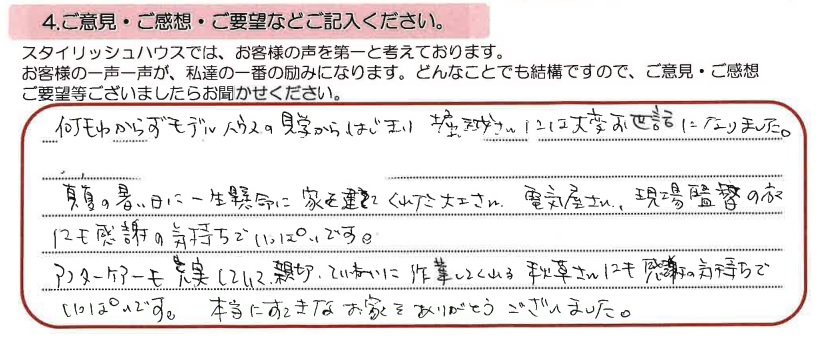 4.ご意見・ご感想・ご要望などご記入ください。
スタイリッシュハウスでは、お客様の声を第一と考えております。
お客様の一声一声が、私達の一番の励みになります。どんなことでも結構ですので、ご意見・ご感想
ご要望等ございましたらお聞かせください。
何もわからずモデルハウスの見学からはじまり 堀砂さんには大変お世話になりました。
真夏の暑い日に一生懸命に家を建ててくれた大工さん、電気屋さん、現場監督の方
にも感謝の気持ちでいっぱいです。
アフターケアーも充実していて、親切、ていねいに作業してくれる秋草さんにも感謝の気持ちで
いっぱいです。 本当にすてきなお家をありがとうございました。